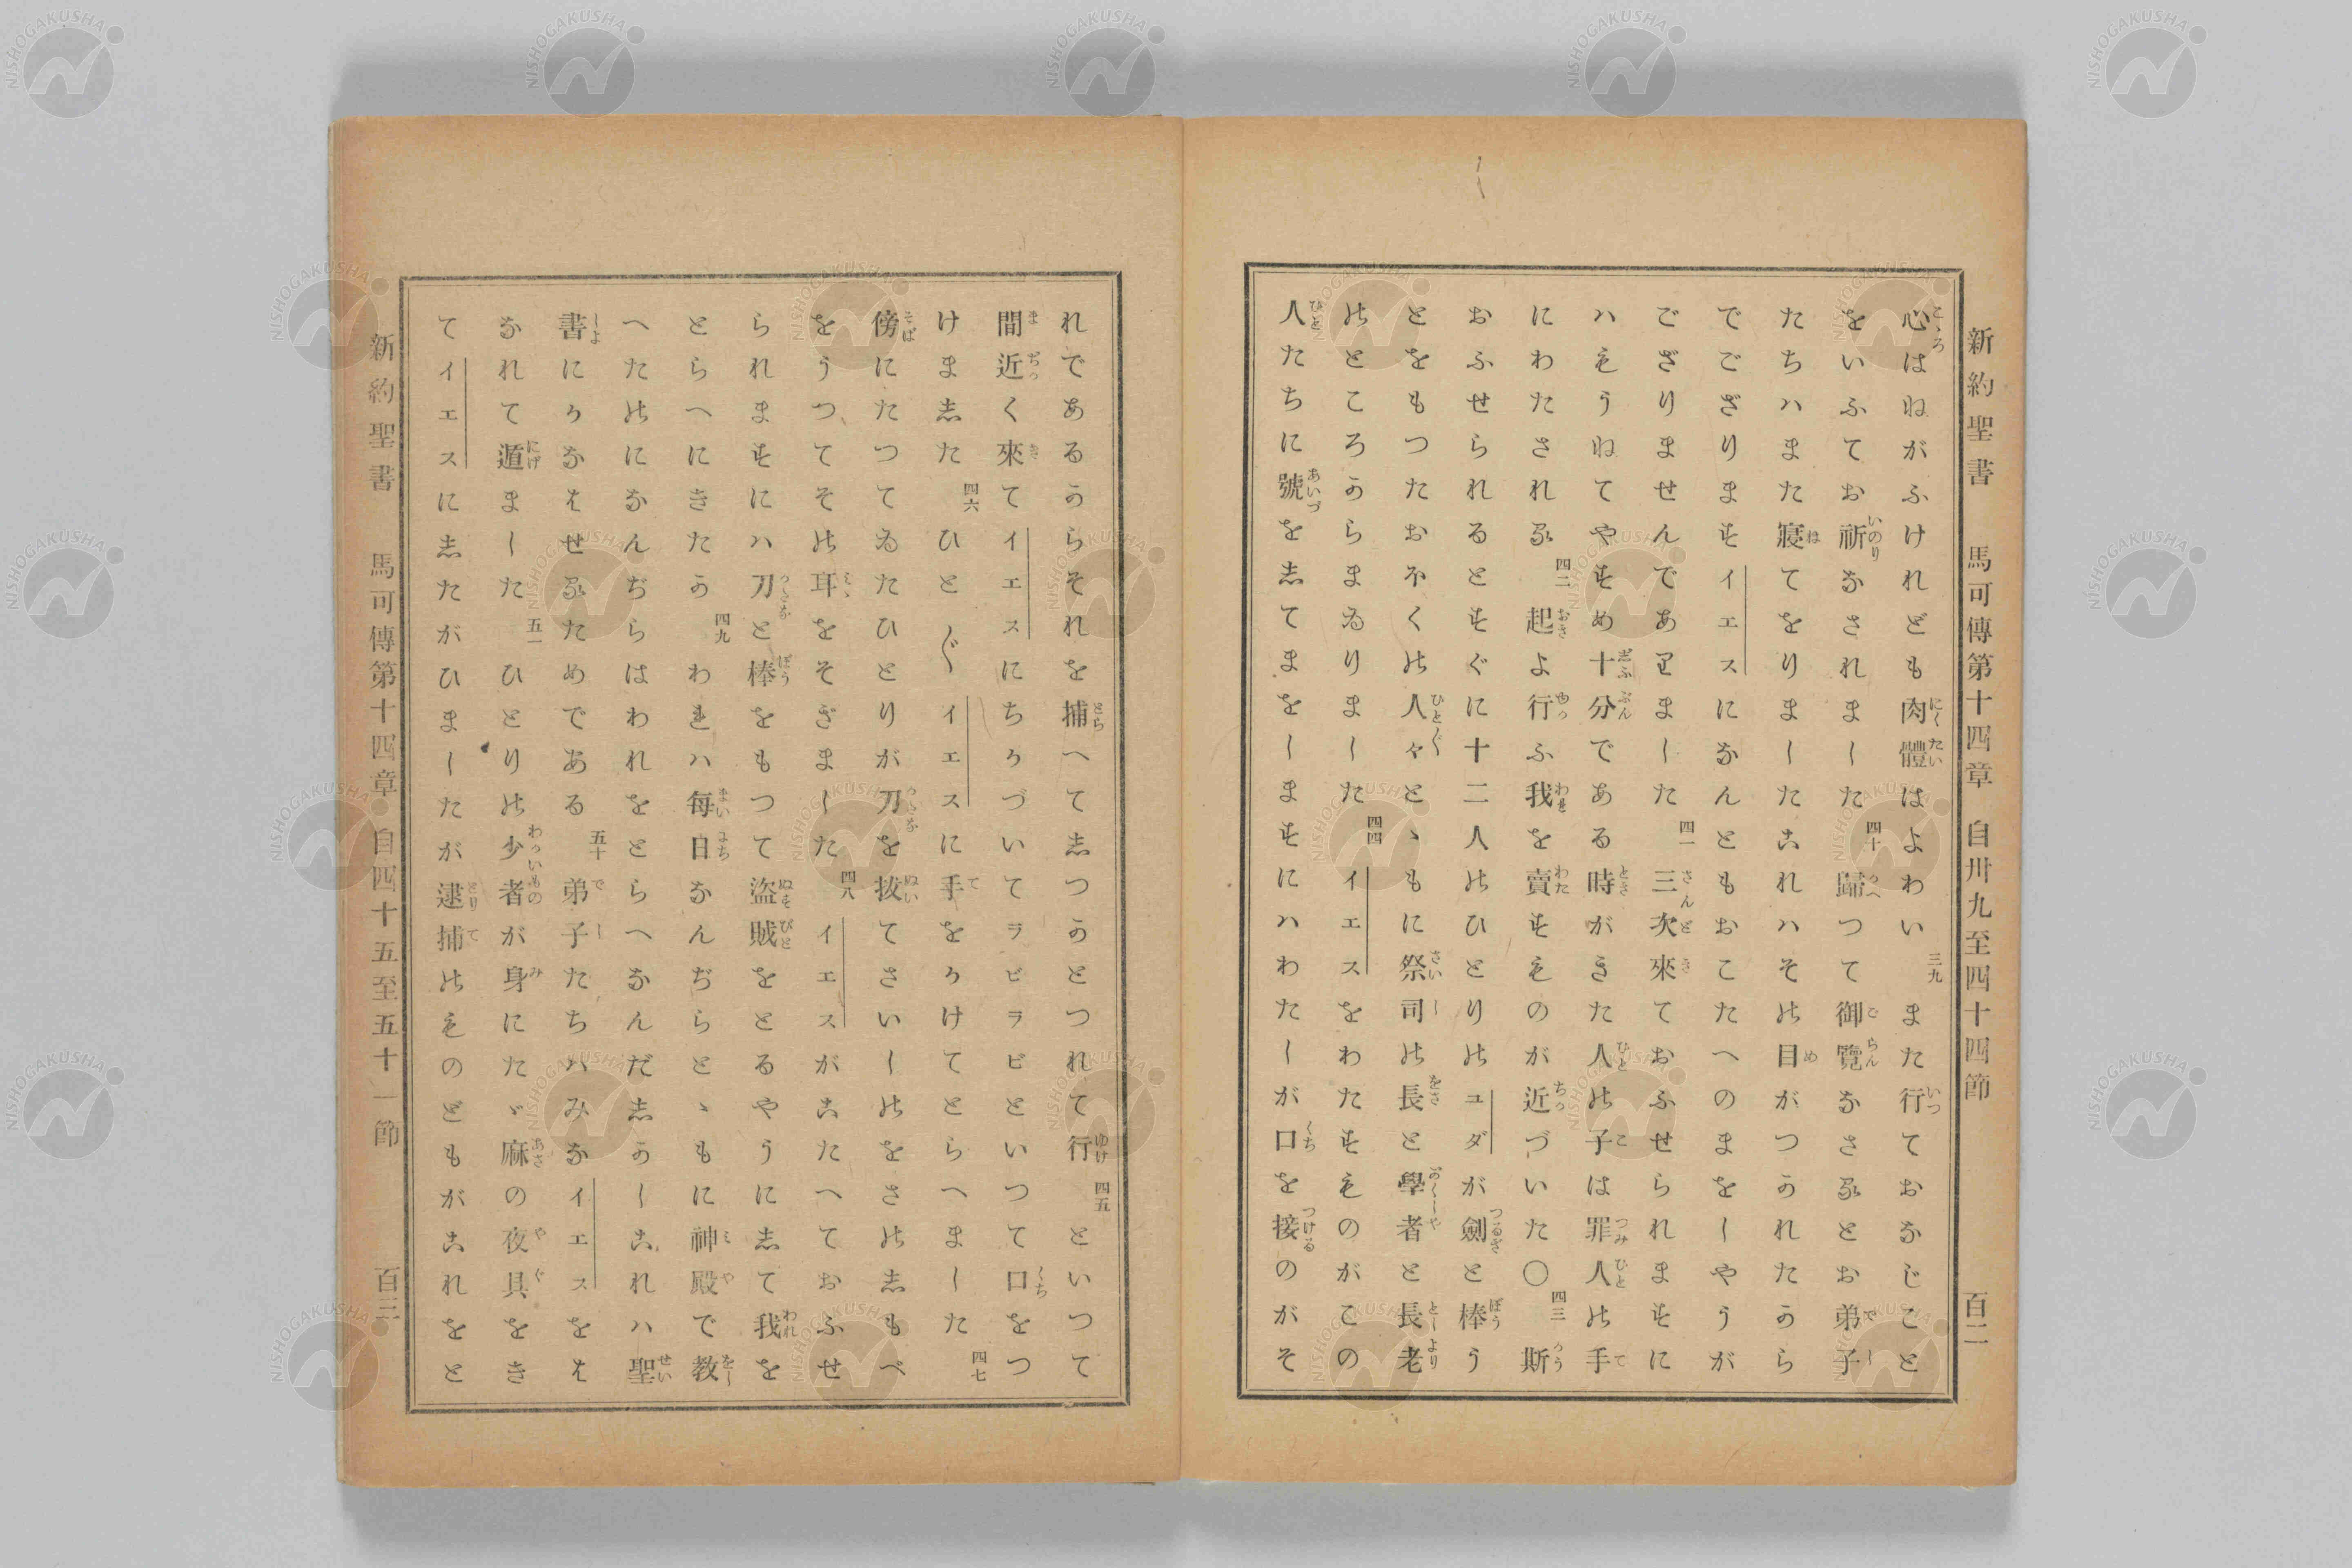 新約聖書 馬可傳第十四章 自卅九至四十四節 百二
心はねがふけれども肉體はよわい 三九 また行ておなじこと
をいふてお祈なされました 四十 歸つて御覽なさるとお弟子
たちハまた寢てをりましたこれハその目がつかれたから
でござりますイエスになんともおこたへのまをしやうが
ござりませんでありました 四一 三次來ておふせられますに
ハもうねてやすめ十分である時がきた人の子は罪人の手
にわたされる 四二 起よ行ふ我を賣すものが近づいた〇 四三 斯
おふせられるとすぐに十二人のひとりのユダが劍と棒う
とをもつたおほくの人々とゝもに祭司の長と學者と長老
のところからまゐりました 四四 イエスをわたすものがこの
人たちに號をしてまをしますにハわたしが口を接るのがそ
れであるからそれを捕へてしつかとつれて行 四五 といつて
間近く來てイエスにちかづいてラビラビといつて口をつ
けました 四六 ひと〲イエスに手をかけてとらへました 四七
傍にたつてゐたひとりが刀を拔てさいしのをさのしもべ
をうつてその耳をそぎました 四八 イエスがこたへておふせ
られますにハ刀と棒をもつて盜賊をとるやうにして我を
とらへにきたか 四九 われハ每日なんぢらとゝもに神殿で教
へたのになんぢらはわれをとらへなんだしかしこれハ聖
書にかなはせるためである 五十 弟子たちハみなイエスをは
なれて遁ました 五一 ひとりの少者が身にたゞ麻の夜具をき
てイエスにしたがひましたが逮捕のものどもがこれをと
新約聖書 馬可傳第十四章 自四十五至五十一節 百三